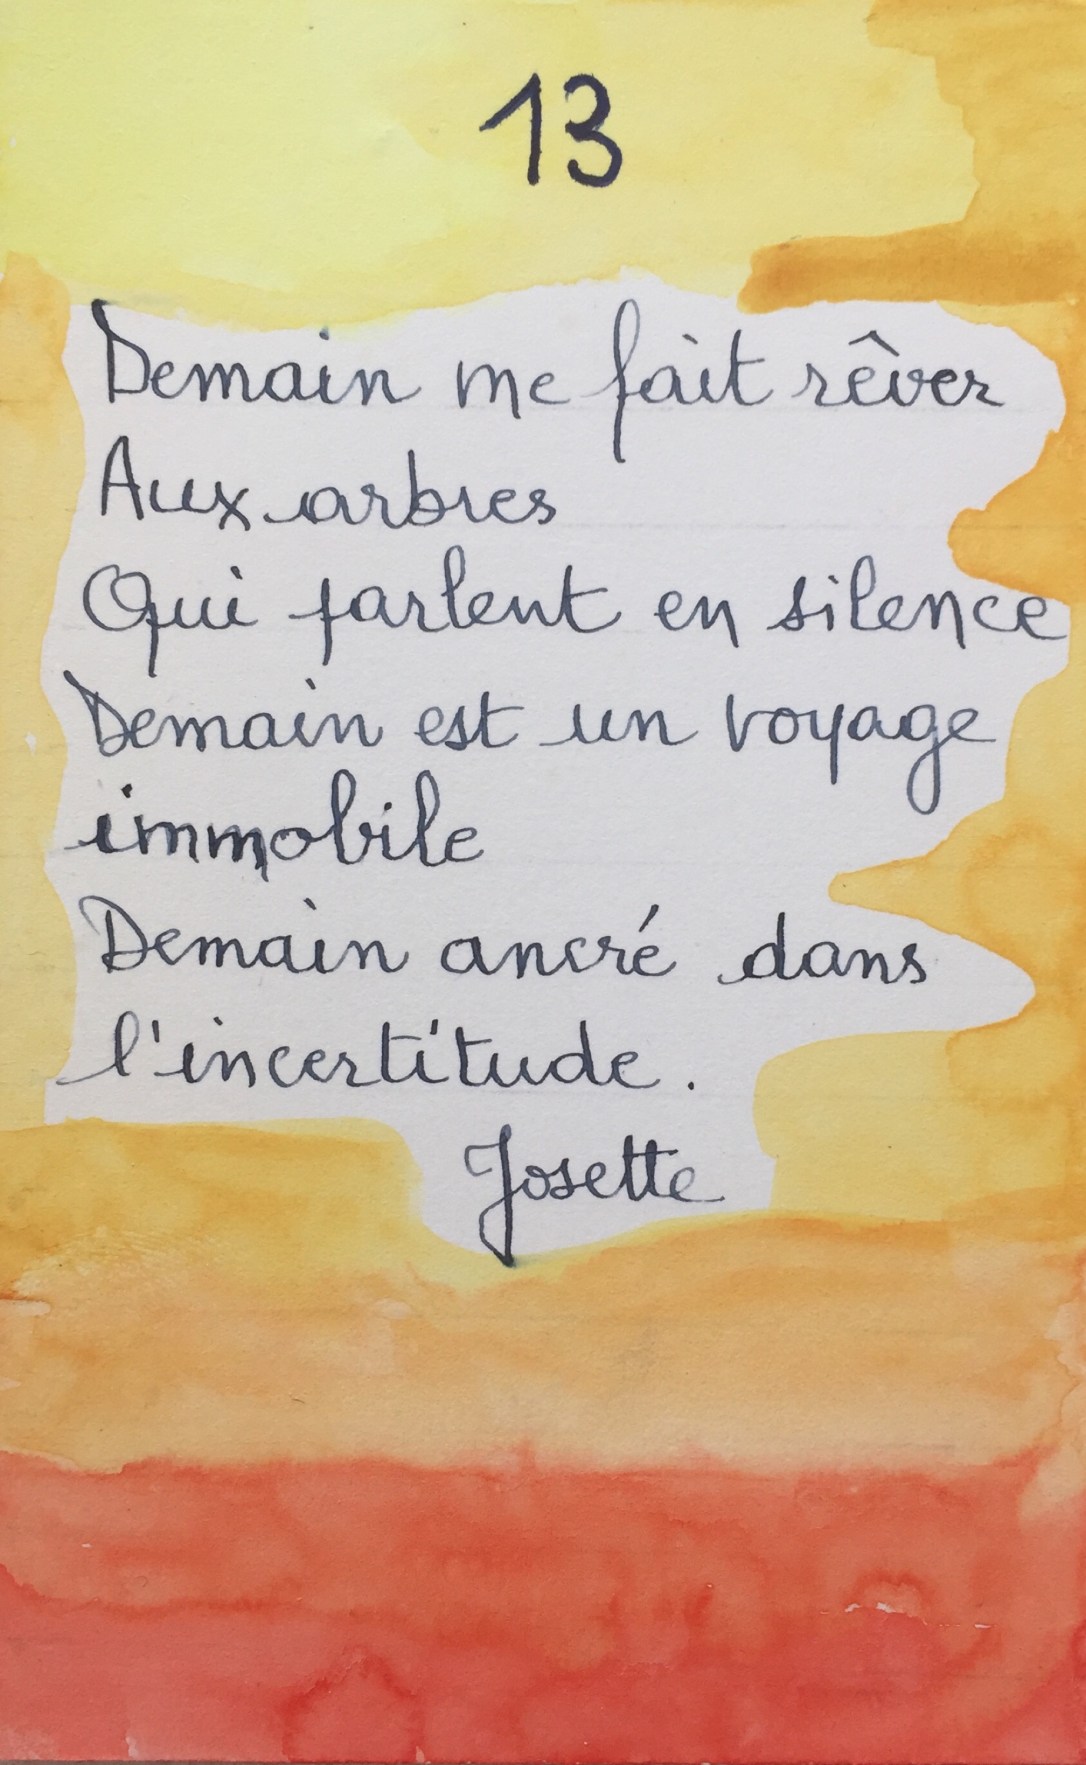 13
Demain me fait rêver
Aux arbres
Qui parlent en silence
Demain est un voyage
immobile
Demain ancré dans
l'incertitude.
Josette